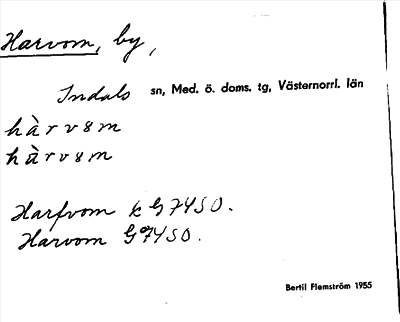 Harvom, by,
Indals sn, Med. ö. doms. tg, Västernorrl. län
hàrvɜm
hàrvɜm
Harfvom k G74SO.
Harvom G74SO.
Bertil Flemström 1955